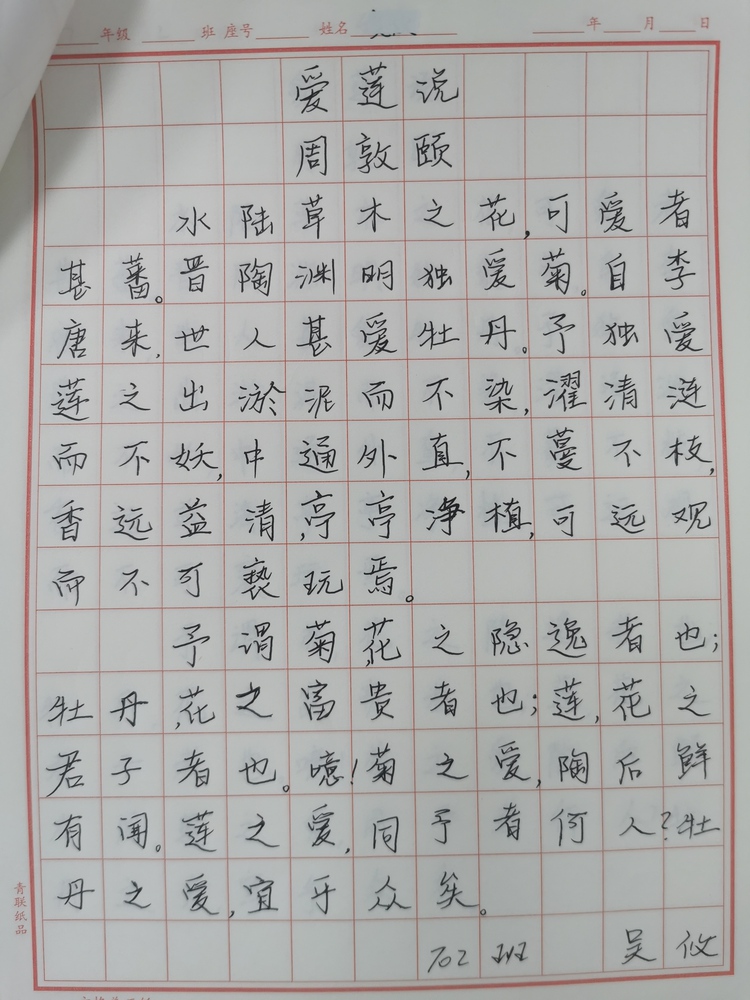 年级 班 座号 姓名 年 月 日
爱莲说
周敦颐
水陆草木之花,可爱者
甚蕃。晋陶渊明独爱菊。自李
唐来,世人甚爱牡丹。予独爱
莲之出淤泥而不染,濯清涟
而不妖,中通外直,不蔓不枝,
香远益清,亭亭净植,可远观
而不可亵玩焉。
予谓菊,花之隐逸者也;
牡丹,花之富贵者也;莲,花之
君子者也。噫!菊之爱,陶后鲜
有闻。莲之爱,同予者何人?牡
丹之爱,宜乎众矣。
702班 吴攸
青联纸品